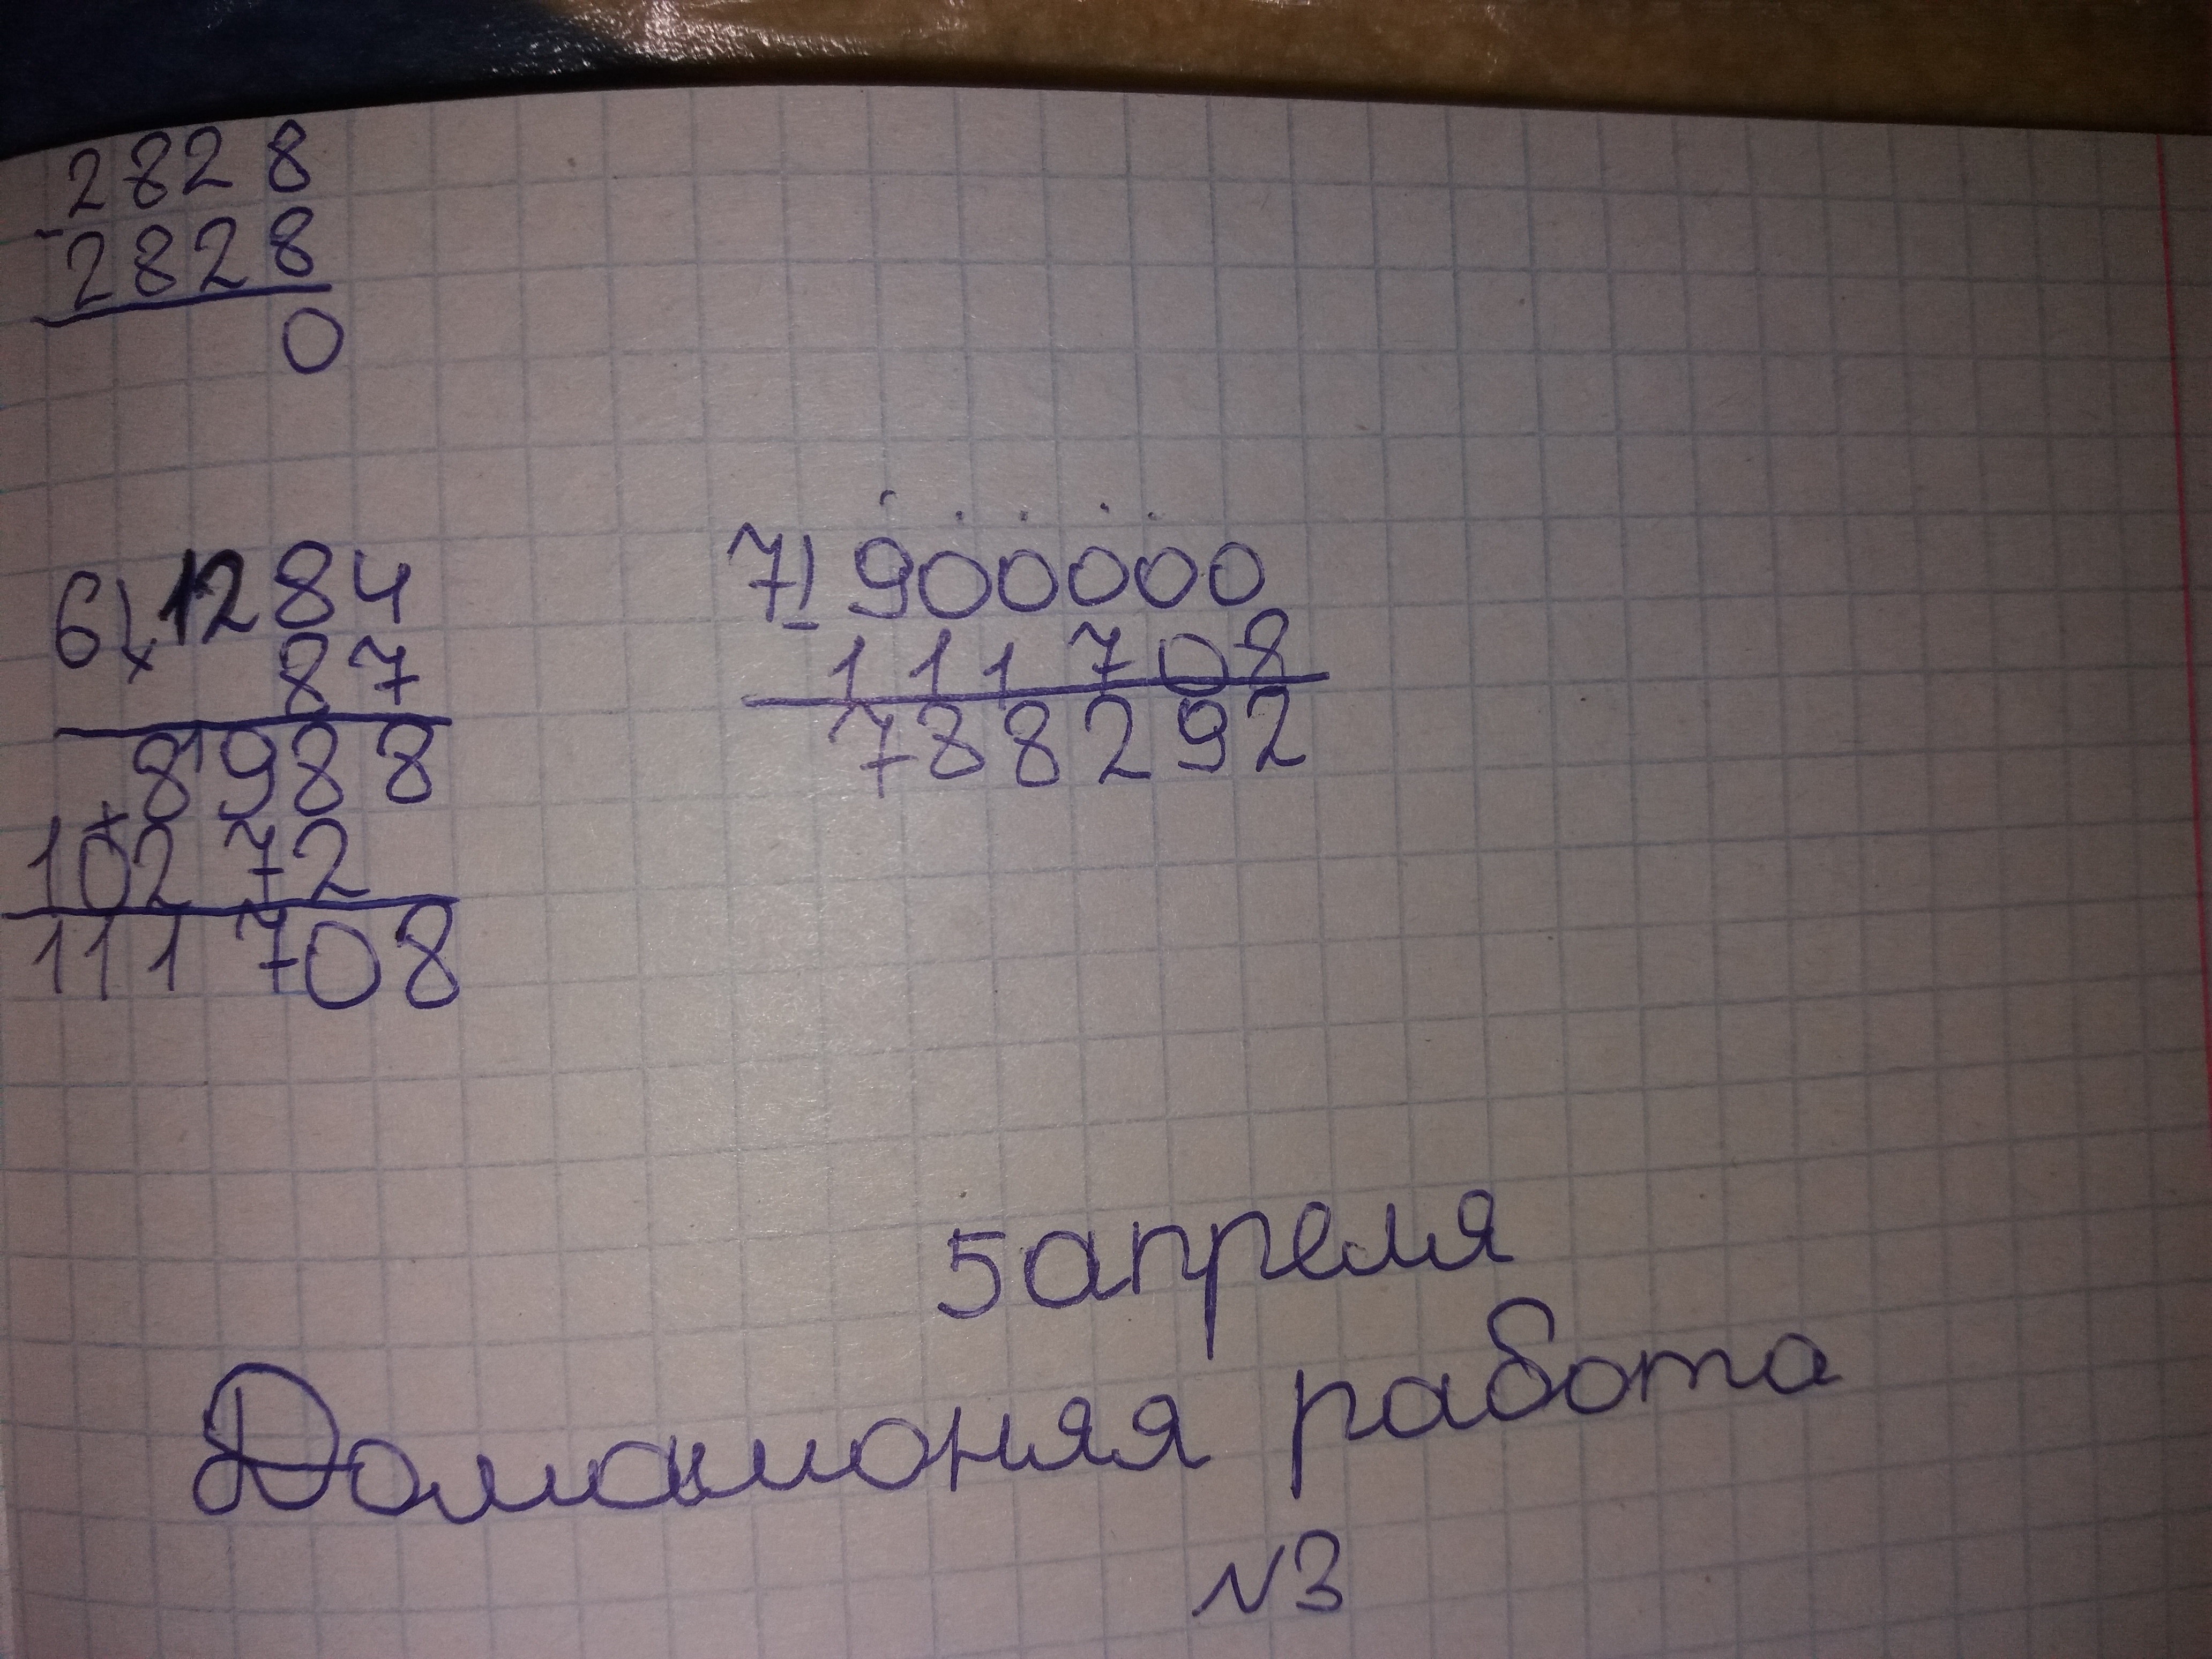 2828
-
2828
0
6) 1284
×
87
8988
+
10272
111708
7) 900000
-
111708
788292
5 апреля
Домашоняя работа
№3